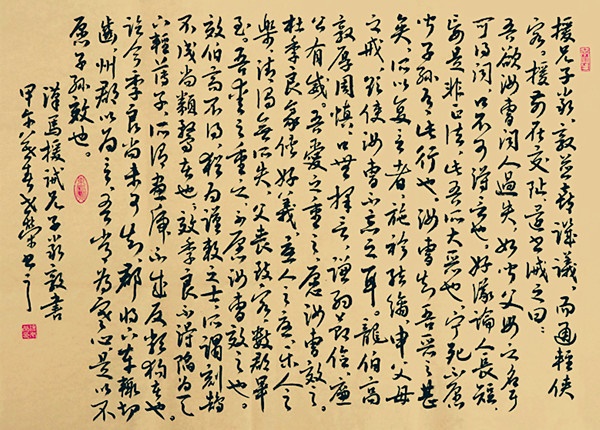 援兄子嚴、敦並喜譏議,而通輕俠
客。援前在交趾還書誡之曰:
吾欲汝曹聞人過失,如聞父母之名耳
可得聞,口不可得言也。好議論人長短,
妄是非正法,此吾所大惡也。寧死不願
聞子孫有此行也。汝曹知吾惡之甚
矣,所以復言者,施衿結縭申父母
之戒,欲使汝曹不忘之耳。龍伯高
敦厚周慎,口無擇言,謙約節儉,廉
公有威。吾愛之重之,願汝曹效之。
杜季良豪俠好義,憂人之憂,樂人之
樂,清濁無所失,父喪致客數郡畢
至。吾愛之重之,不願汝曹效之也。
效伯高不得,猶為謹敕之士,所謂刻鵠
不成尚類鶩者也。效季良不得陷為天
下輕薄子,所謂畫虎不成反類狗者也。
訖今季良尚未可知,郡將下車輒切
齒,州郡以為言,吾常為寒心,是以不
願子孫效也。
漢馬援誡兄子嚴敦書
甲午春榮書